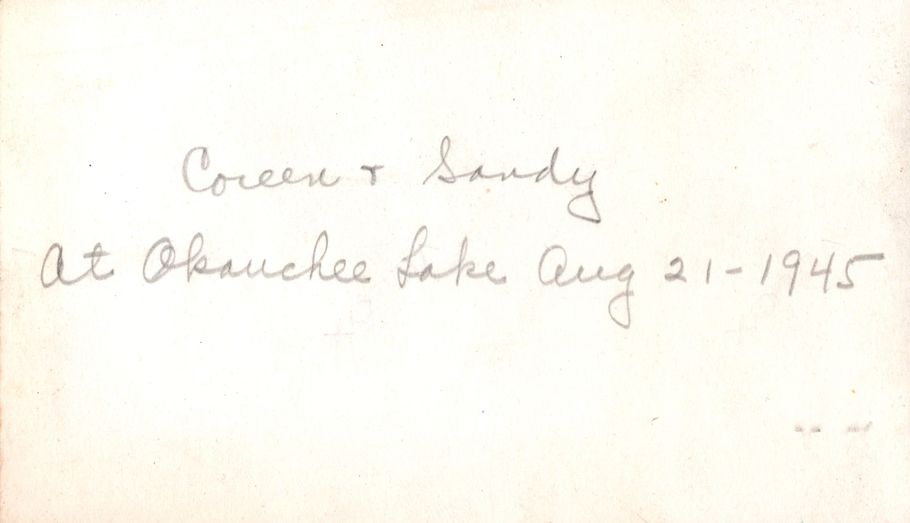 Coreen + Sandy
At Okauchee Lake Aug 21-1945